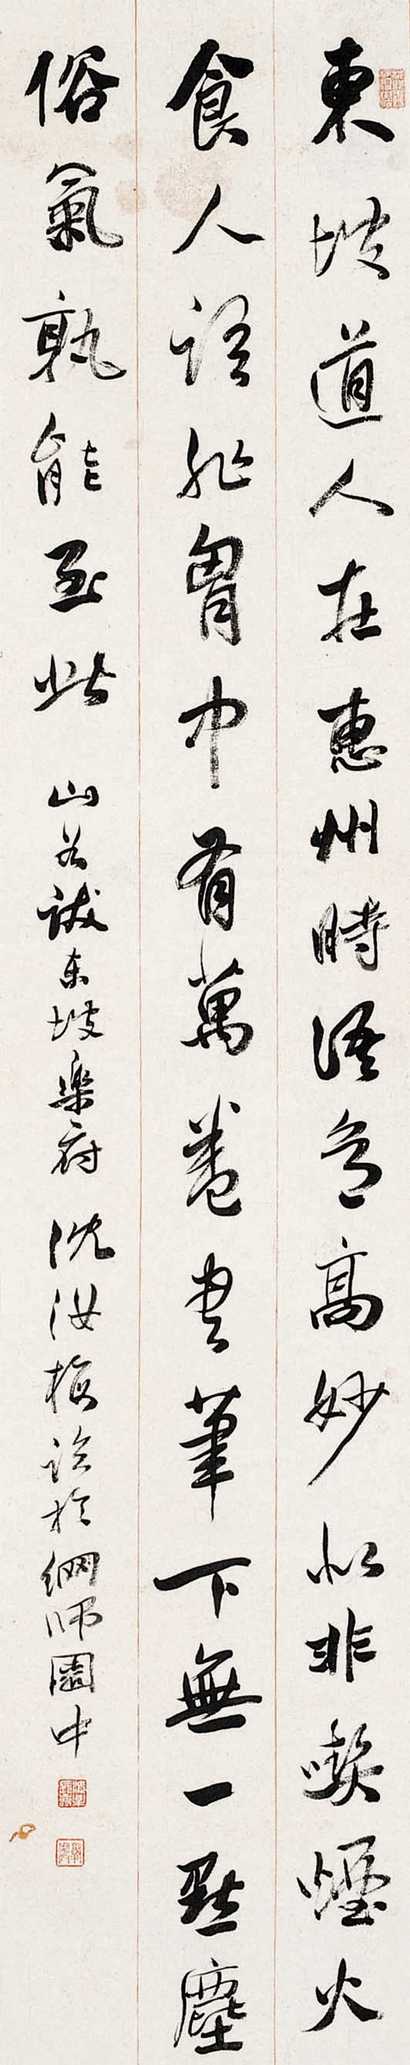 東坡道人在惠州時語意高妙似非喫煙火
食人語非胷中有萬卷書筆下無一點塵
俗氣孰能至此 山谷跋東坡樂府 沈汝梅識於網師園中